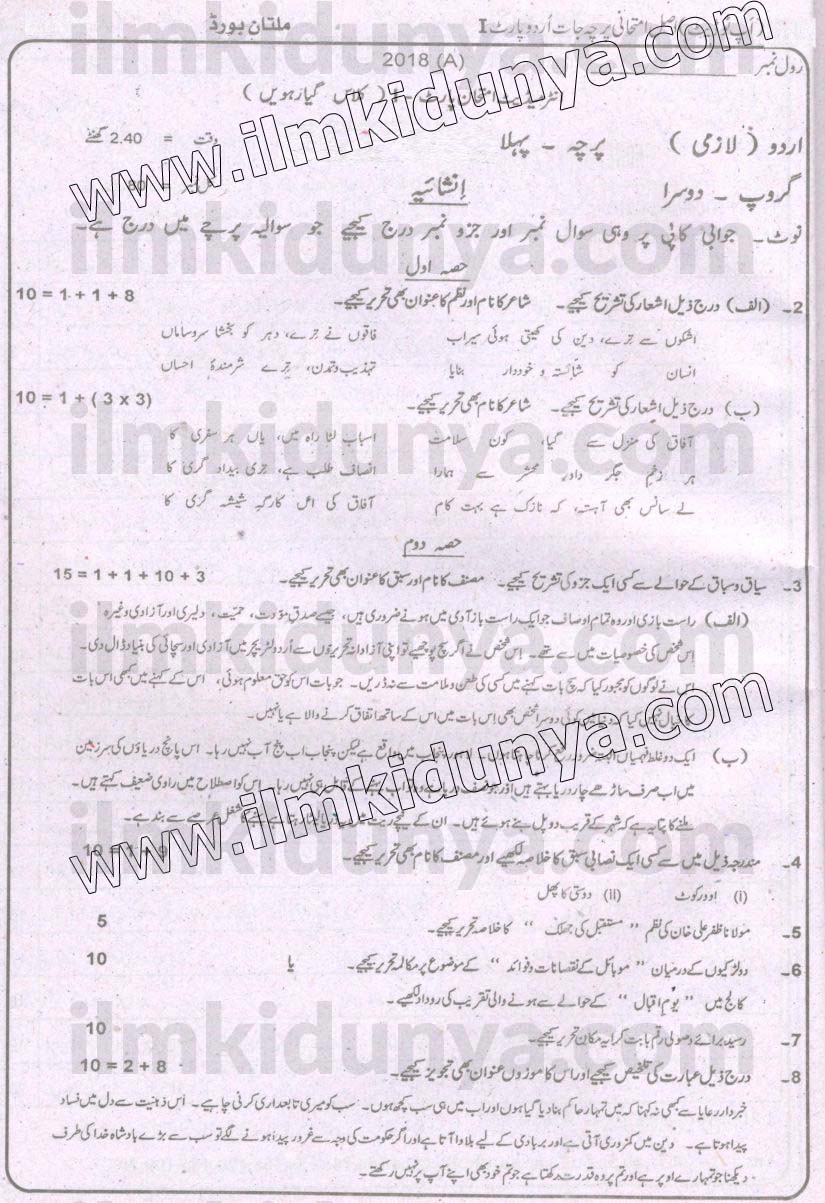 اصل امتحانی پرچہ جات اُردو پارٹ I ملتان بورڈ
رول نمبر 2018 (A)
انٹرمیڈیٹ امتحان پارٹ – I ( کلاس گیارہویں )
اردو ( لازمی ) پرچہ ۔ پہلا وقت = 2.40 گھنٹے
گروپ ۔ دوسرا اِنشائیہ = 80
نوٹ۔ جوابی کاپی پر وہی سوال نمبر اور جزو نمبر درج کیجیے جو سوالیہ پرچے میں درج ہے۔
حصہ اول
2۔ (الف) درج ذیل اشعار کی تشریح کیجیے۔ شاعر کا نام اور نظم کا عنوان بھی تحریر کیجیے۔ 10 = 1 + 1 + 8
اشکوں سے ترے، دین کی کھیتی ہوئی سیراب فاقوں نے ترے، دہر کو بخشا سروساماں
انسان کو شائستہ و خوددار بنایا تہذیب و تمدن، ترے شرمندۂ احساں
(ب) درج ذیل اشعار کی تشریح کیجیے۔ شاعر کا نام بھی تحریر کیجیے۔ 10 = 1 + ( 3 x 3)
آفاق کی منزل سے گیا، کون سلامت اسباب لٹا راہ میں، یاں ہر سفری کا
ہر زخمِ جگر داورِ محشر سے ہمارا انصاف طلب ہے، تری بیداد گری کا
لے سانس بھی آہستہ، کہ نازک ہے بہت کام آفاق کی اس کارگہِ شیشہ گری کا
حصہ دوم
3۔ سیاق و سباق کے حوالے سے کسی ایک جزو کی تشریح کیجیے۔ مصنف کا نام اور سبق کا عنوان بھی تحریر کیجیے۔ 15 = 1 + 1 + 10 + 3
(الف) راست بازی اور وہ تمام اوصاف جو ایک راست باز آدمی میں ہونے ضروری ہیں، جیسے صدقِ مؤدت، حمیّت، دلیری اور آزادی وغیرہ
اِس شخص کی خصوصیات میں سے تھے۔ اِس شخص نے اگر سچ پوچھیے تو اپنی آزادانہ تحریروں سے اُردو لٹریچر میں آزادی اور سچائی کی بنیاد ڈال دی۔
اس نے لوگوں کو مجبور کیا کہ سچ بات کہنے میں کسی کی طعن و ملامت سے نہ ڈریں۔ جو بات اس کو حق معلوم ہوئی، اس کے کہنے میں کبھی اس بات
کا خیال نہیں کیا کہ دنیا میں کوئی دوسرا شخص بھی اِس بات میں اس کے ساتھ اتفاق کرنے والا ہے یا نہیں۔
(ب) ایک دو غلط فہمیاں البتہ ضرور رفع کرنا چاہتا ہوں۔ لاہور پنجاب میں واقع ہے لیکن پنجاب اب پنج آب نہیں رہا۔ اس پانچ دریاؤں کی سرزمین
میں اب صرف ساڑھے چار دریا بہتے ہیں اور جو نصف دریا ہے وہ تو اب بہنے کے قابل ہی نہیں رہا۔ اس کو اصطلاح میں راوی ضعیف کہتے ہیں۔
ملنے کا پتا یہ ہے کہ شہر کے قریب دو پل بنے ہوئے ہیں۔ ان کے نیچے ریت میں دریا لیٹا رہتا ہے بہنے کا شغل عرصے سے بند ہے۔
4۔ مندرجہ ذیل میں سے کسی ایک نصابی سبق کا خلاصہ لکھیے اور مصنف کا نام بھی تحریر کیجیے۔ 10 = 1 + 9
(i) اوورکوٹ (ii) دوستی کا پھل
5۔ مولانا ظفر علی خان کی نظم " مستقبل کی جھلک " کا خلاصہ تحریر کیجیے۔ 5
6۔ دو لڑکیوں کے درمیان " موبائل کے نقصانات و فوائد " کے موضوع پر مکالمہ تحریر کیجیے۔ یا 10
کالج میں " یومِ اقبال " کے حوالے سے ہونے والی تقریب کی روداد لکھیے۔
7۔ رسید برائے وصولی رقم بابت کرایہ مکان تحریر کیجیے۔ 10
8۔ درج ذیل عبارت کی تلخیص کیجیے اور اس کا موزوں عنوان بھی تجویز کیجیے۔ 10 = 2 + 8
خبردار رعایا سے کبھی نہ کہنا کہ میں تمہارا حاکم بنا دیا گیا ہوں اور اب میں ہی سب کچھ ہوں۔ سب کو میری تابعداری کرنی چاہیے۔ اس ذہنیت سے دل میں فساد
پیدا ہوتا ہے۔ دین میں کمزوری آتی ہے اور بربادی کے لیے بلاوا آتا ہے اور اگر حکومت کی وجہ سے غرور پیدا ہونے لگے تو سب سے بڑے بادشاہ خدا کی طرف
دیکھنا جو تمہارے اوپر ہے اور تم پر وہ قدرت رکھتا ہے جو تم خود بھی اپنے آپ پر نہیں رکھتے۔
www.ilmkidunya.com
www.ilmkidunya.com
ilmkidunya.com
ilmkidunya.com
ilmkidunya.com
ilmkidunya.com
ilmkidunya.com
ilmkidunya.com